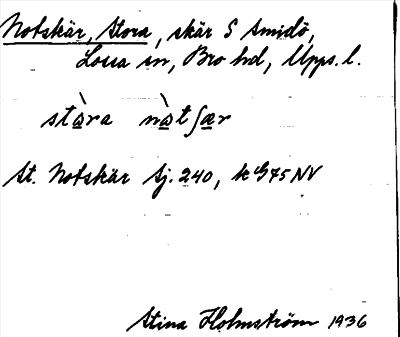 Notskär, Stora, skär S Smidö,
Lossa sn, Bro hd, Upps. l.
stàra nàtʃær
St. Notskär Sj. 240, k G75NV
Stina Holmström 1936